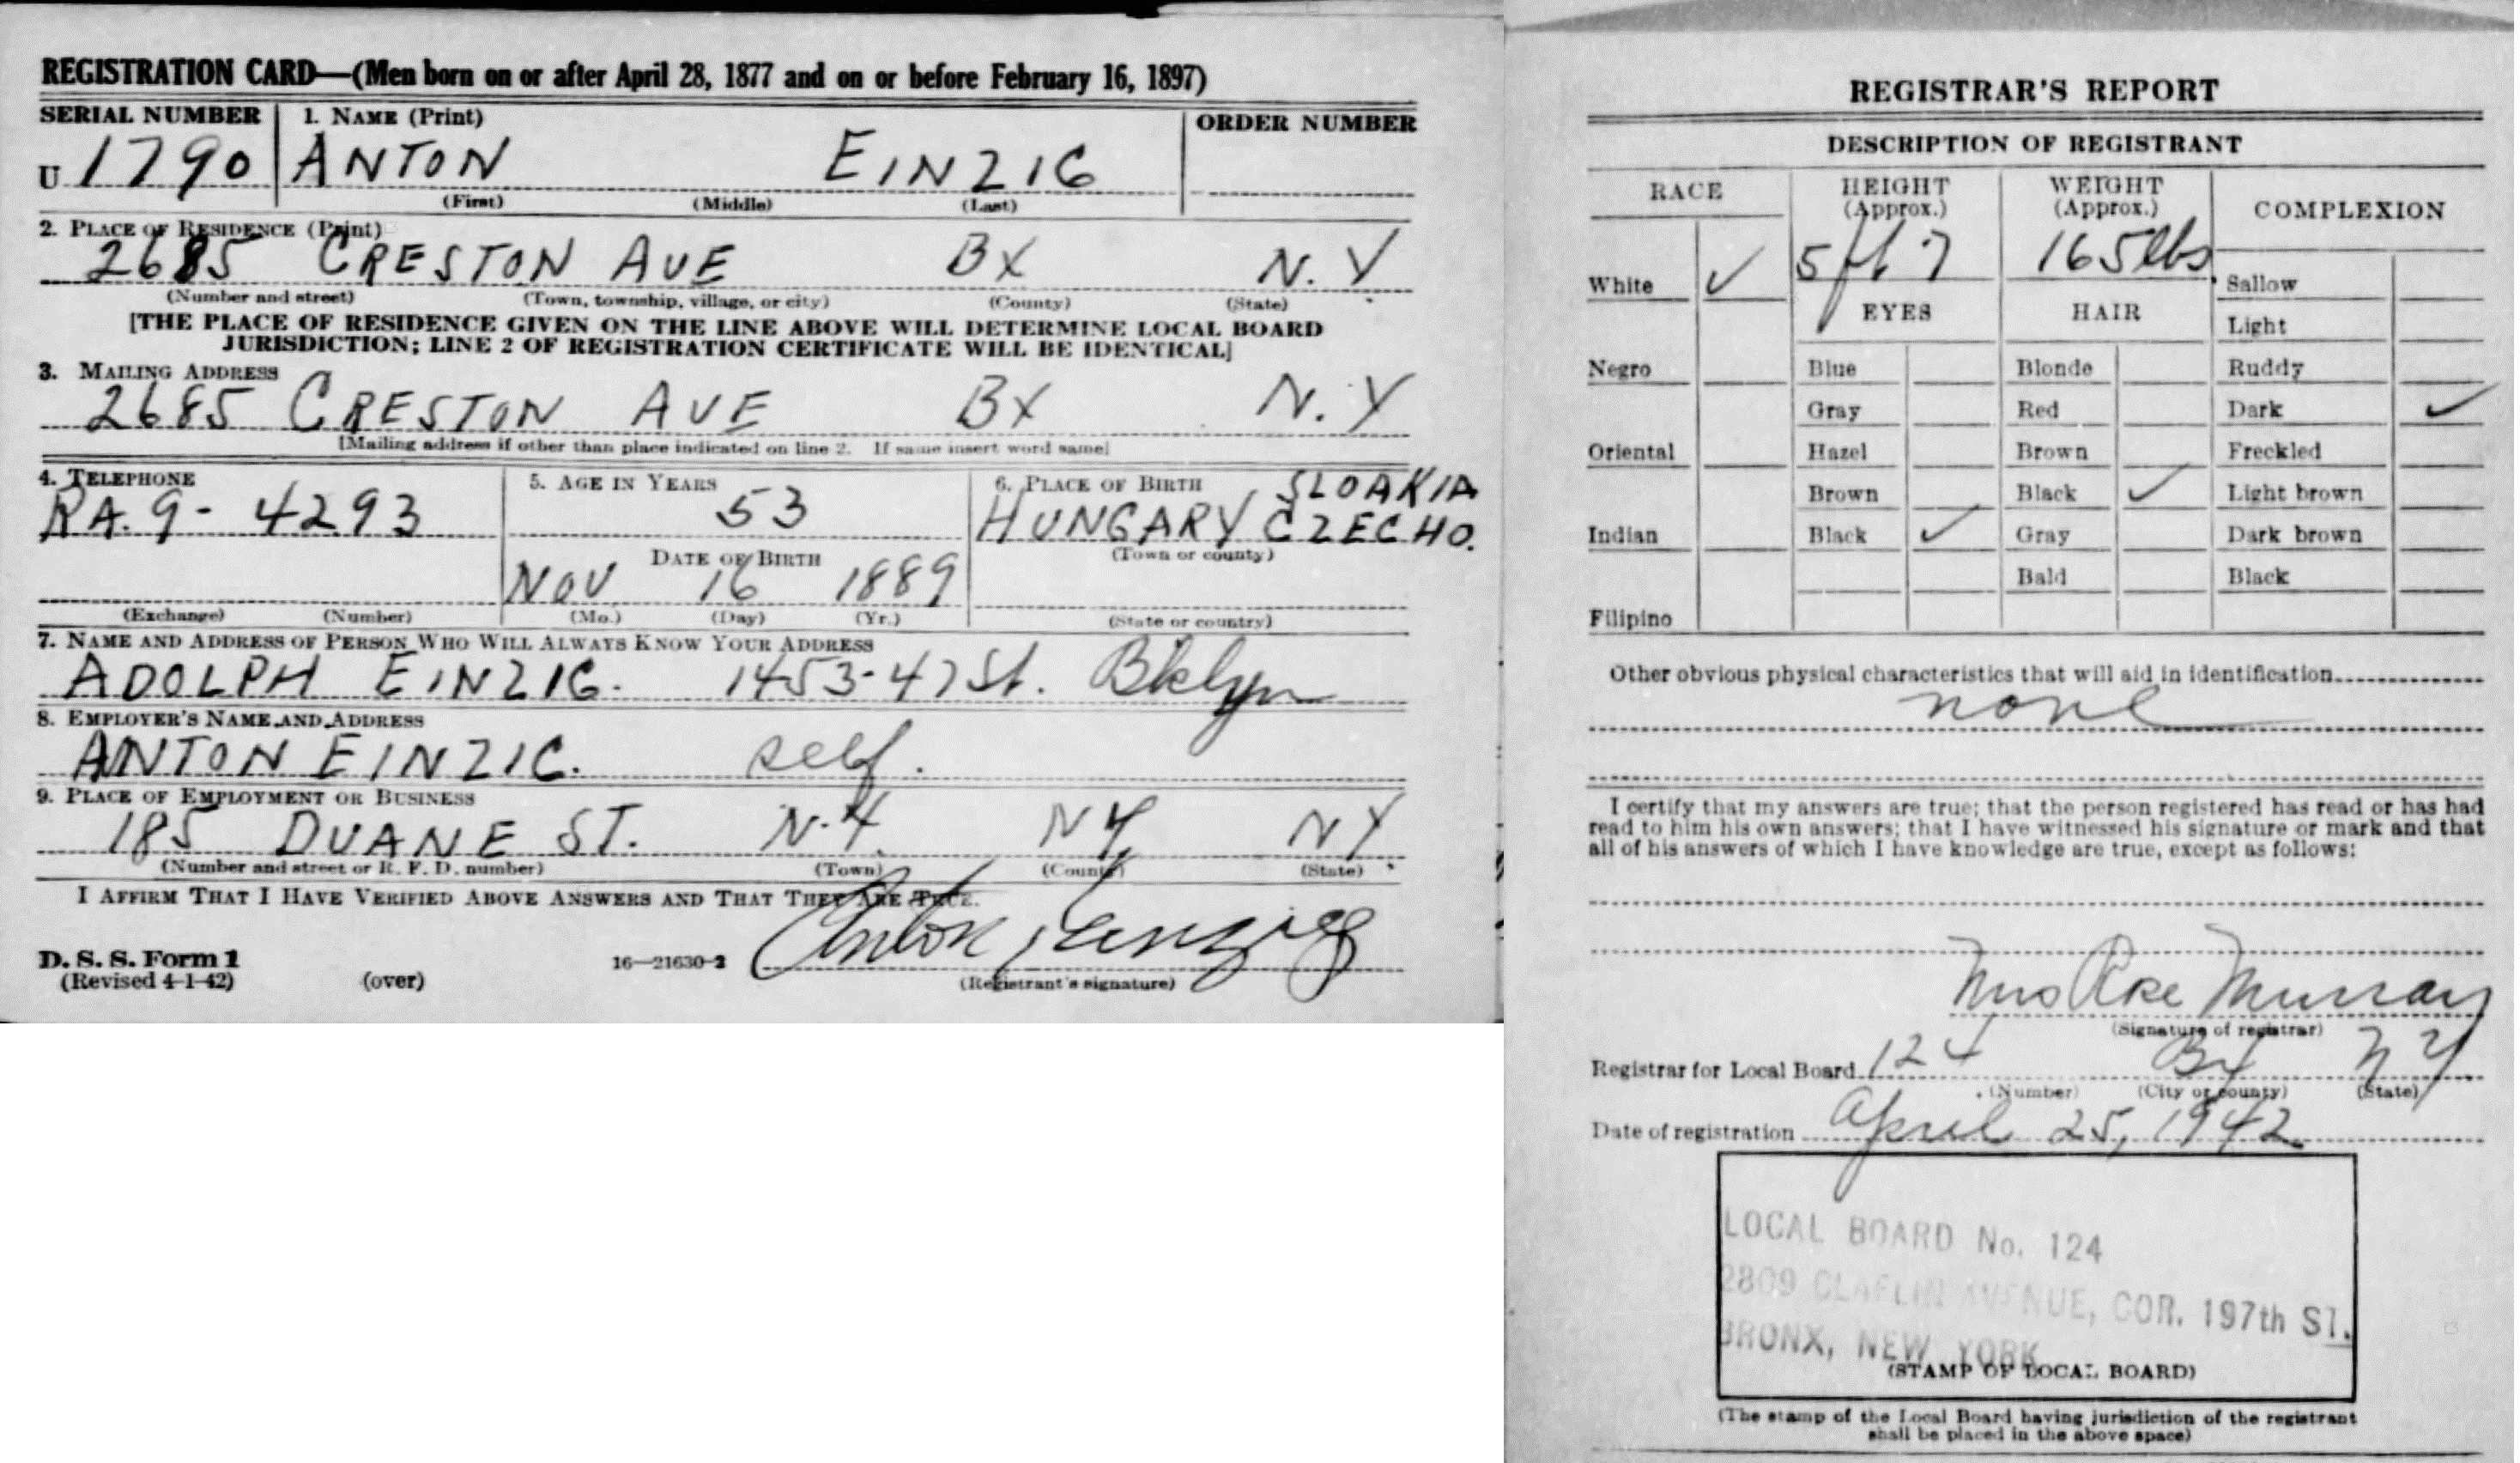 REGISTRATION CARD—(Men born on or after April 28, 1877 and on or before February 16, 1897)
SERIAL NUMBER
1. NAME (Print)
ORDER NUMBER
U 1790
ANTON EINZIG
(First) (Middle) (Last)
2. PLACE OF RESIDENCE (Print)
2685 CRESTON AVE BX N.Y
(Number and street) (Town, township, village, or city) (County) (State)
[THE PLACE OF RESIDENCE GIVEN ON THE LINE ABOVE WILL DETERMINE LOCAL BOARD
JURISDICTION; LINE 2 OF REGISTRATION CERTIFICATE WILL BE IDENTICAL]
3. MAILING ADDRESS
2685 CRESTON AVE BX N.Y
[Mailing address if other than place indicated on line 2. If same insert word same]
4. TELEPHONE
RA. 9- 4293
(Exchange) (Number)
5. AGE IN YEARS
53
DATE OF BIRTH
NOV 16 1889
(Mo.) (Day) (Yr.)
6. PLACE OF BIRTH SLOAKIA
HUNGARY CZECHO.
(Town or county)
(State or country)
7. NAME AND ADDRESS OF PERSON WHO WILL ALWAYS KNOW YOUR ADDRESS
ADOLPH EINZIG. 1453-47 St. Bklyn
8. EMPLOYER'S NAME AND ADDRESS
ANTON EINZIG. self.
9. PLACE OF EMPLOYMENT OR BUSINESS
185 DUANE ST. N.Y. NY. NY.
(Number and street or R. F. D. number) (Town) (County) (State)
I AFFIRM THAT I HAVE VERIFIED ABOVE ANSWERS AND THAT THEY ARE TRUE.
D. S. S. Form 1
(Revised 4-1-42) (over)
16—21630-2
Anton Einzig
(Registrant's signature)
REGISTRAR'S REPORT
DESCRIPTION OF REGISTRANT
RACE
HEIGHT (Approx.)
WEIGHT (Approx.)
COMPLEXION
White ✓
5 ft 7
165 lbs.
Sallow
EYES
HAIR
Light
Negro
Blue
Blonde
Ruddy
Gray
Red
Dark ✓
Oriental
Hazel
Brown
Freckled
Brown
Black ✓
Light brown
Indian
Black ✓
Gray
Dark brown
Bald
Black
Filipino
Other obvious physical characteristics that will aid in identification
none
I certify that my answers are true; that the person registered has read or has had
read to him his own answers; that I have witnessed his signature or mark and that
all of his answers of which I have knowledge are true, except as follows:
Mrs Murray
(Signature of registrar)
Registrar for Local Board 124 Bx NY
(Number) (City or county) (State)
Date of registration April 25, 1942
LOCAL BOARD No. 124
2809 CLAFLIN AVENUE, COR. 197th ST.
BRONX, NEW YORK
(STAMP OF LOCAL BOARD)
(The stamp of the Local Board having jurisdiction of the registrant
shall be placed in the above space)